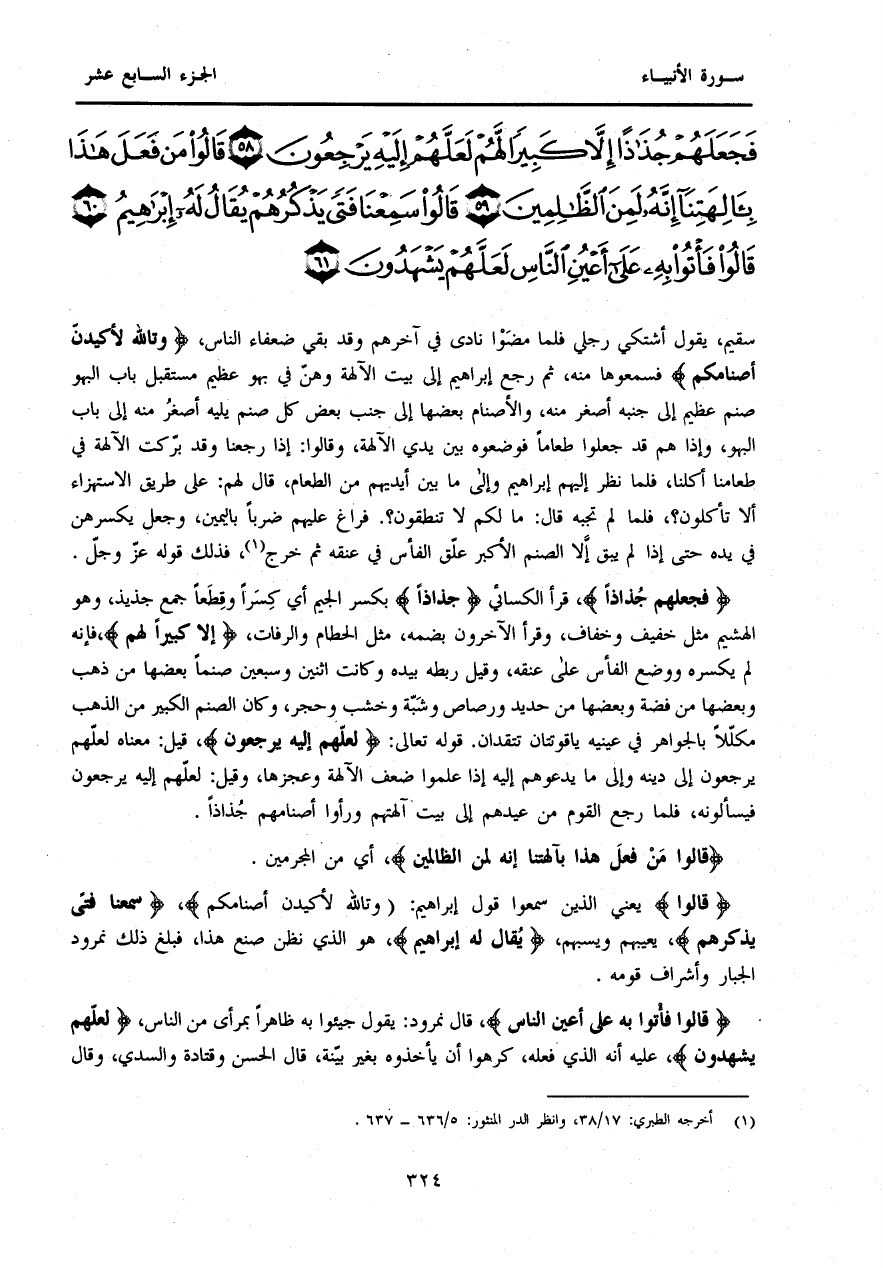 سـورة الأنبيـاء
الجـزء السـابع عشر
فَجَعَلَهُمْ جُذَٰذًا إِلَّا كَبِيرًا لَّهُمْ لَعَلَّهُمْ إِلَيْهِ يَرْجِعُونَ ٥٨ قَالُوا۟ مَن فَعَلَ هَٰذَا
بِـَٔالِهَتِنَآ إِنَّهُۥ لَمِنَ ٱلظَّٰلِمِينَ ٥٩ قَالُوا۟ سَمِعْنَا فَتًى يَذْكُرُهُمْ يُقَالُ لَهُۥٓ إِبْرَٰهِيمُ ٦٠
قَالُوا۟ فَأْتُوا۟ بِهِۦ عَلَىٰٓ أَعْيُنِ ٱلنَّاسِ لَعَلَّهُمْ يَشْهَدُونَ ٦١
سقيم، يقول أشتكي رجلي فلما مضَوْا نادى في آخرهم وقد بقي ضعفاء الناس، ﴿ وتالله لأكيدنّ
أصنامكم ﴾ فسمعوها منه، ثم رجع إبراهيم إلى بيت الآلهة وهنّ في بهو عظيم مستقبل باب البهو
صنم عظيم إلى جنبه أصغر منه، والأصنام بعضها إلى جنب بعض كل صنم يليه أصغرُ منه إلى باب
البهو، وإذا هم قد جعلوا طعاماً فوضعوه بين يدي الآلهة، وقالوا: إذا رجعنا وقد برّكت الآلهة في
طعامنا أكلنا، فلما نظر إليهم إبراهيم وإلى ما بين أيديهم من الطعام، قال لهم: على طريق الاستهزاء
ألا تأكلون؟، فلما لم تجبه قال: ما لكم لا تنطقون؟. فراغ عليهم ضرباً باليمين، وجعل يكسرهن
في يده حتى إذا لم يبق إلَّا الصنم الأكبر علّق الفأس في عنقه ثم خرج(١)، فذلك قوله عزّ وجلّ .
﴿ فجعلهم جُذاذاً ﴾، قرأ الكسائي ﴿ جذاذاً ﴾ بكسر الجيم أي كِسَراً وقِطَعاً جمع جذيذ، وهو
الهشيم مثل خفيف وخفاف، وقرأ الآخرون بضمه، مثل الحطام والرفات، ﴿ إلا كبيراً لهم ﴾،فإنه
لم يكسره ووضع الفأس على عنقه، وقيل ربطه بيده وكانت اثنين وسبعين صنماً بعضها من ذهب
وبعضها من فضة وبعضها من حديد ورصاص وشَبّة وخشب وحجر، وكان الصنم الكبير من الذهب
مكلّلاً بالجواهر في عينيه ياقوتتان تتقدان. قوله تعالى: ﴿ لعلّهم إليه يرجعون ﴾، قيل: معناه لعلّهم
يرجعون إلى دينه وإلى ما يدعوهم إليه إذا علموا ضعف الآلهة وعجزها، وقيل: لعلّهم إليه يرجعون
فيسألونه، فلما رجع القوم من عيدهم إلى بيت آلهتهم ورأوا أصنامهم جُذاذاً .
﴿قالوا مَنْ فعلَ هذا بآلهتنا إنه لمن الظالمين ﴾، أي من المجرمين .
﴿ قالوا ﴾ يعني الذين سمعوا قول إبراهيم: ( وتالله لأكيدن أصنامكم ﴾، ﴿ سمعنا فتًى
يذكرهم ﴾، يعيبهم ويسبهم، ﴿ يُقال له إبراهيم ﴾، هو الذي نظن صنع هذا، فبلغ ذلك نمرود
الجبار وأشراف قومه .
﴿ قالوا فأْتوا به على أعين الناس ﴾، قال نمرود: يقول جيئوا به ظاهراً بمرأى من الناس، ﴿ لعلّهم
يشهدون ﴾، عليه أنه الذي فعله، كرهوا أن يأخذوه بغير بيّنة، قال الحسن وقتادة والسدي، وقال
(١) أخرجه الطبري: ٣٨/١٧، وانظر الدر المنثور: ٦٣٦/٥ ـ ٦٣٧ .
٣٢٤